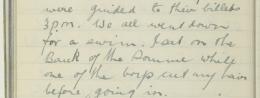 were guided to their billets
3pm. We all went down
for a swim. I sat on the
Bank of the Somme while
one of the boys cut my hair
before going in.